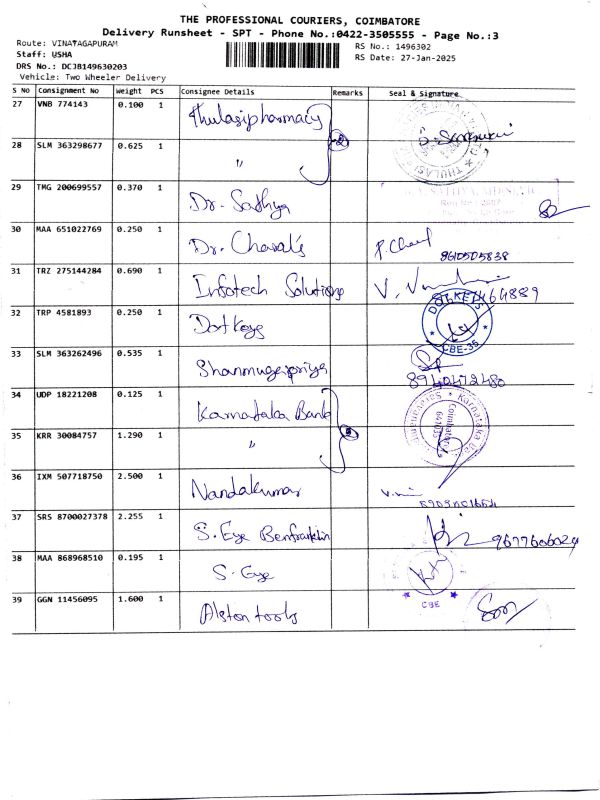 THE PROFESSIONAL COURIERS, COIMBATORE
Delivery Runsheet - SPT - Phone No.:0422-3505555 - Page No.:3
Route: VINATAGAPURAM
Staff: USHA
DRS No.: DCJB149630203
Vehicle: Two Wheeler Delivery
RS No.: 1496302
RS Date: 27-Jan-2025
S No Consignment No Weight PCS Consignee Details Remarks Seal & Signature
27 VNB 774143 0.100 1 Thulasipharmacy
28 SLM 363298677 0.625 1 " 2
29 TMG 200699557 0.370 1 Dr. Sathya
30 MAA 651022769 0.250 1 Dr. Charal's
31 TRZ 275144284 0.690 1 Infotech Solutions
32 TRP 4581893 0.250 1 Dotkeys DOTKEYS CBE-35
33 SLM 363262496 0.535 1 Shanmugapriya 8940472480
34 UDP 18221208 0.125 1 Karnataka Bank Karnataka Coimbatore
35 KRR 30084757 1.290 1 "
36 IXM 507718750 2.500 1 Nandakumar
37 SRS 8700027378 2.255 1 S. Eye Benfranklin
38 MAA 868968510 0.195 1 S. Eye CBE
39 GGN 11456095 1.600 1 Alston tools